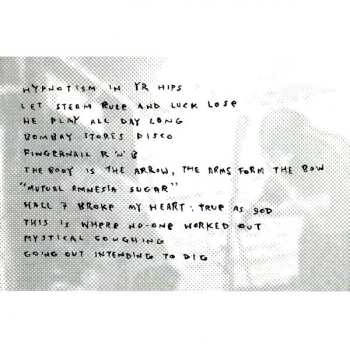 HYPNOTISM IN YR HIPS
LET STEEM RULE AND LUCK LOSE
HE PLAY ALL DAY LONG
BOMBAY STORES DISCO
FINGERNAIL R'N'B
THE BODY IS THE ARROW, THE ARMS FORM THE BOW
"MUTUAL AMNESIA SUGAR"
HALL 7 BROKE MY HEART, TRUE AS GOD
THIS IS WHERE NO-ONE WORKED OUT
MYSTICAL COUGHING
GOING OUT INTENDING TO DIG